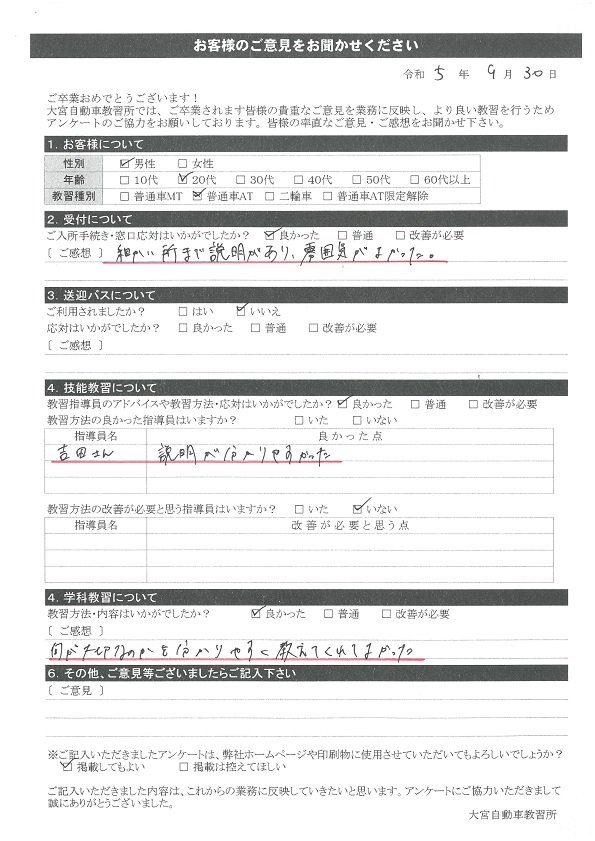 お客様のご意見をお聞かせください
令和 5 年 9 月 30 日
ご卒業おめでとうございます！
大宮自動車教習所では、ご卒業されます皆様の貴重なご意見を業務に反映し、より良い教習を行うため
アンケートのご協力をお願いしております。皆様の率直なご意見・ご感想をお聞かせ下さい。
1. お客様について
性別 ☑男性 □女性
年齢 □10代 ☑20代 □30代 □40代 □50代 □60代以上
教習種別 □普通車MT ☑普通車AT □二輪車 □普通車AT限定解除
2. 受付について
ご入所手続き・窓口応対はいかがでしたか？ ☑良かった □普通 □改善が必要
〔 ご感想 〕 細かい所まで説明があり、雰囲気がよかった。
3. 送迎バスについて
ご利用されましたか？ □はい ☑いいえ
応対はいかがでしたか？ □良かった □普通 □改善が必要
〔 ご感想 〕
4. 技能教習について
教習指導員のアドバイスや教習方法・応対はいかがでしたか？ ☑良かった □普通 □改善が必要
教習方法の良かった指導員はいますか？ □いた □いない
指導員名 良かった点
吉田さん 説明が分かりやすかった
教習方法の改善が必要と思う指導員はいますか？ □いた ☑いない
指導員名 改善が必要と思う点
4. 学科教習について
教習方法・内容はいかがでしたか？ ☑良かった □普通 □改善が必要
〔 ご感想 〕
何が大切なのかを分かりやすく教えてくれてよかった
6. その他、ご意見等ございましたらご記入下さい
〔 ご意見 〕
※ご記入いただきましたアンケートは、弊社ホームページや印刷物に使用させていただいてもよろしいでしょうか？
☑掲載してもよい □掲載は控えてほしい
ご記入いただきました内容は、これからの業務に反映していきたいと思います。アンケートにご協力いただきまして
誠にありがとうございました。
大宮自動車教習所